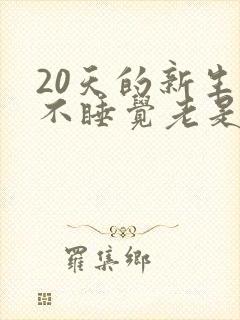 20天的新生
不睡覺老是
羅集鄉